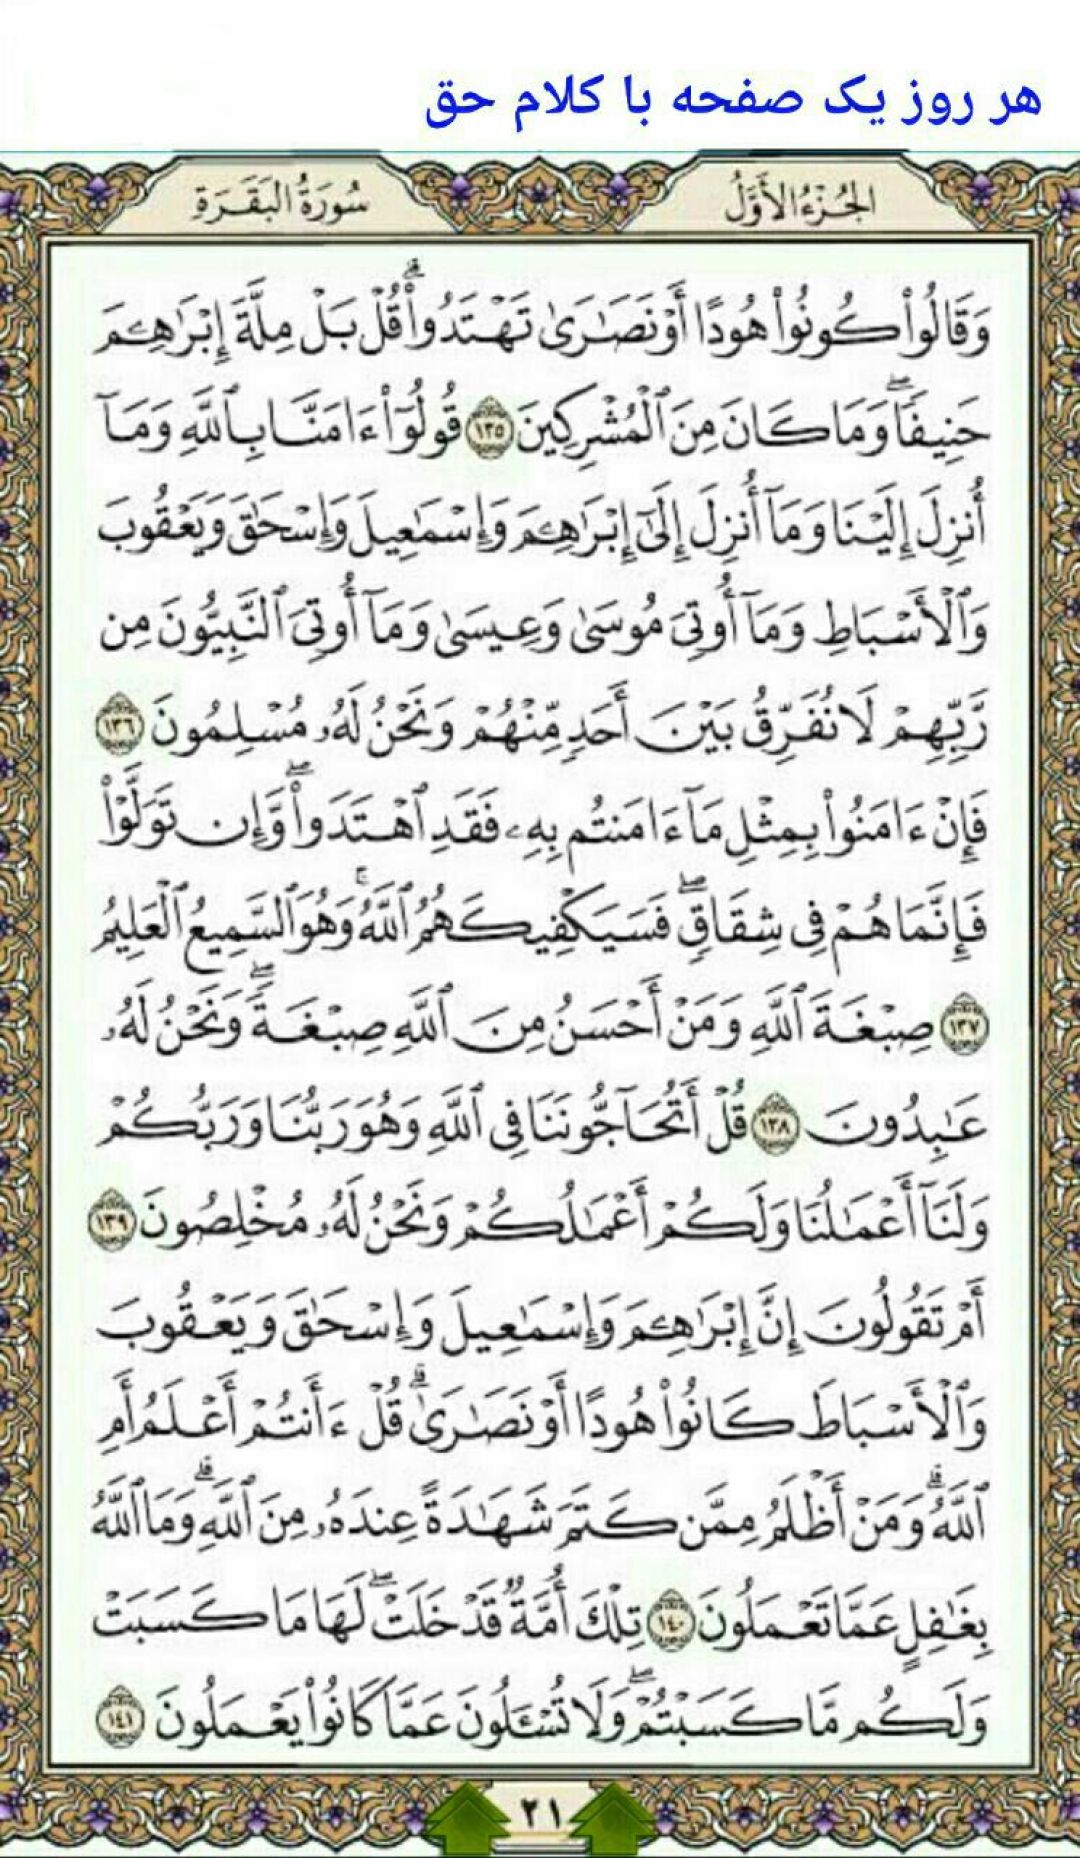 هر روز یک صفحه با کلام حق
الجُزْءُ الأَوَّلُ
سُورَةُ البَقَرَةِ
وَقَالُواْ كُونُواْ هُودًا أَوْ نَصَٰرَىٰ تَهْتَدُواْۗ قُلْ بَلْ مِلَّةَ إِبْرَٰهِـۧمَ
حَنِيفًاۖ وَمَا كَانَ مِنَ ٱلْمُشْرِكِينَ ١٣٥ قُولُوٓاْ ءَامَنَّا بِٱللَّهِ وَمَآ
أُنزِلَ إِلَيْنَا وَمَآ أُنزِلَ إِلَىٰٓ إِبْرَٰهِـۧمَ وَإِسْمَٰعِيلَ وَإِسْحَٰقَ وَيَعْقُوبَ
وَٱلْأَسْبَاطِ وَمَآ أُوتِيَ مُوسَىٰ وَعِيسَىٰ وَمَآ أُوتِيَ ٱلنَّبِيُّونَ مِن
رَّبِّهِمْ لَا نُفَرِّقُ بَيْنَ أَحَدٍ مِّنْهُمْ وَنَحْنُ لَهُۥ مُسْلِمُونَ ١٣٦
فَإِنْ ءَامَنُواْ بِمِثْلِ مَآ ءَامَنتُم بِهِۦ فَقَدِ ٱهْتَدَواْۖ وَّإِن تَوَلَّوْاْ
فَإِنَّمَا هُمْ فِي شِقَاقٍۖ فَسَيَكْفِيكَهُمُ ٱللَّهُۚ وَهُوَ ٱلسَّمِيعُ ٱلْعَلِيمُ
١٣٧ صِبْغَةَ ٱللَّهِ وَمَنْ أَحْسَنُ مِنَ ٱللَّهِ صِبْغَةًۖ وَنَحْنُ لَهُۥ
عَٰبِدُونَ ١٣٨ قُلْ أَتُحَآجُّونَنَا فِي ٱللَّهِ وَهُوَ رَبُّنَا وَرَبُّكُمْ
وَلَنَآ أَعْمَٰلُنَا وَلَكُمْ أَعْمَٰلُكُمْ وَنَحْنُ لَهُۥ مُخْلِصُونَ ١٣٩
أَمْ تَقُولُونَ إِنَّ إِبْرَٰهِـۧمَ وَإِسْمَٰعِيلَ وَإِسْحَٰقَ وَيَعْقُوبَ
وَٱلْأَسْبَاطَ كَانُواْ هُودًا أَوْ نَصَٰرَىٰۗ قُلْ ءَأَنتُمْ أَعْلَمُ أَمِ
ٱللَّهُۗ وَمَنْ أَظْلَمُ مِمَّن كَتَمَ شَهَٰدَةً عِندَهُۥ مِنَ ٱللَّهِۗ وَمَا ٱللَّهُ
بِغَٰفِلٍ عَمَّا تَعْمَلُونَ ١٤٠ تِلْكَ أُمَّةٌ قَدْ خَلَتْۖ لَهَا مَا كَسَبَتْ
وَلَكُم مَّا كَسَبْتُمْۖ وَلَا تُسْـَٔلُونَ عَمَّا كَانُواْ يَعْمَلُونَ ١٤١
٢١